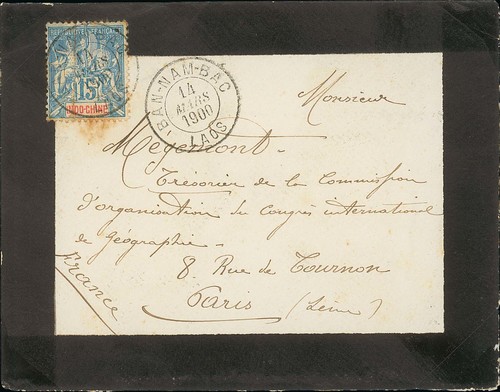 RÉPUBLIQUE FRANÇAISE
15
INDO-CHINE
BAN-NAM-BAC
14
MARS
1900
LAOS
Monsieur
Megemont
Trésorier de la Commission
d'organisation du Congrès international
de Géographie
8 Rue de Tournon
Paris (Seine)
France